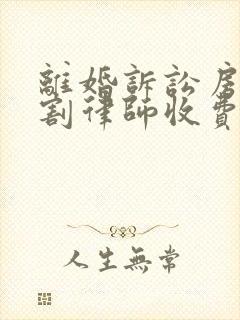 離婚訴訟房
割律師收費
人生無常